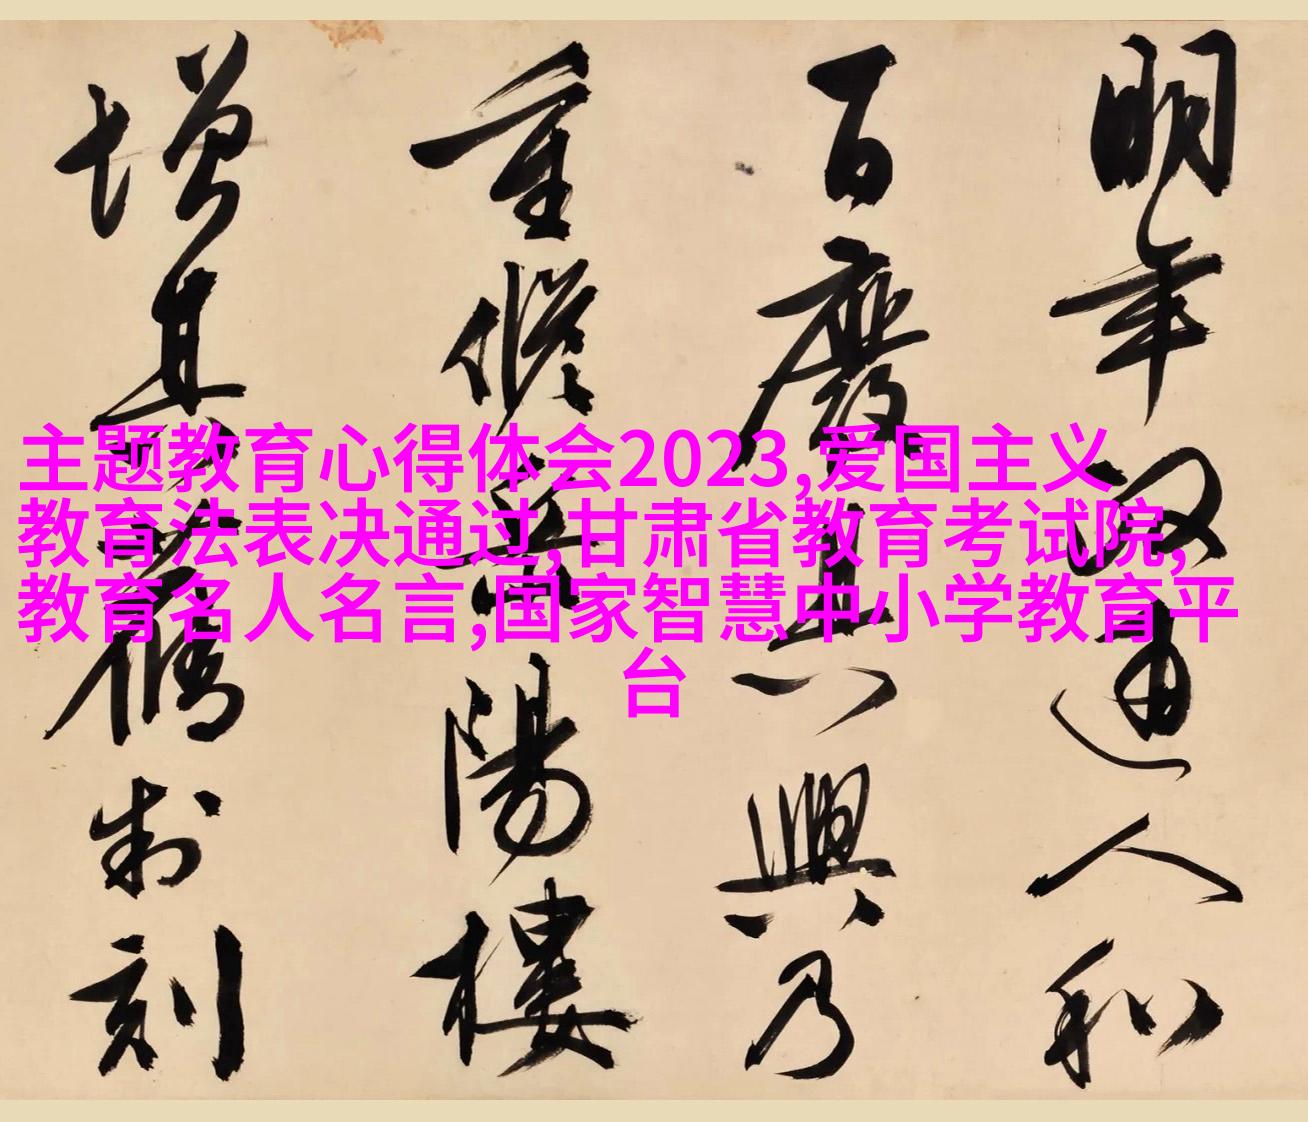 主题教育心得体会2023,爱国主义
教育法表决通过,甘肃省教育考试院,
教育名人名言,国家智慧中小学教育平
台
明年政通人和
百廢具興乃
重脩岳陽樓
增其脩制刻